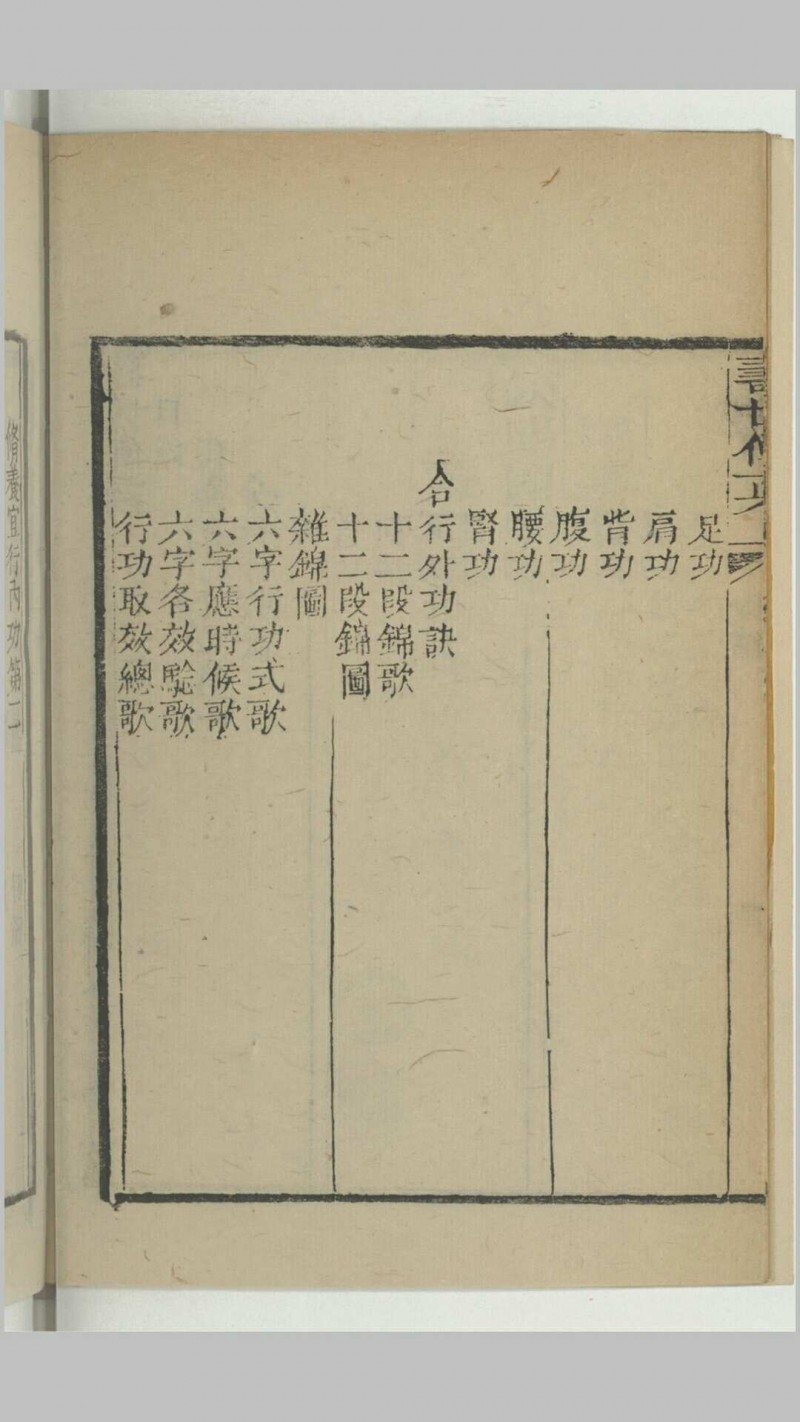 足功
肩功
背功
腹功
腰功
腎功
合行外功訣
十二段錦歌
十二段錦圖
雜錦圖
六字行功式歌
六字應時候歌
六字各效驗歌
行功取效總歌
脩養宜行內功第二